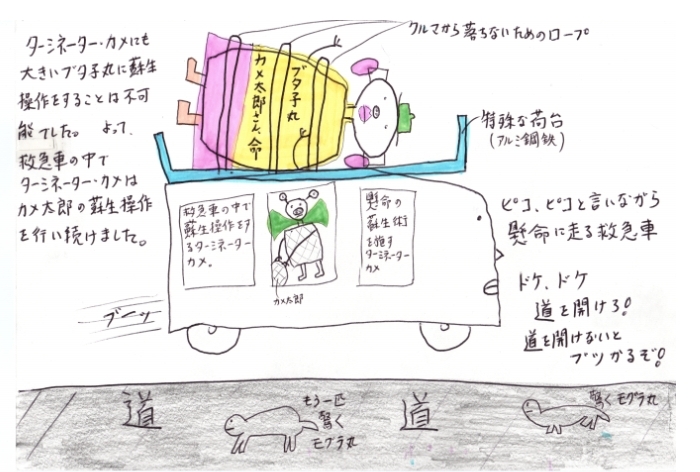 ターシネーター・カメにも
大きいブタ子丸に蘇生
操作をすることは不可
能でした。 よって、
救急車の中で
ターシネーター・カメは
カメ太郎の蘇生操作
を行い続けました。
クルマから落ちないためのロープ
ブタ子丸
カメ太郎さん、命
特殊な荷台
(アルミ鋼鉄)
救急車の中で
蘇生操作をす
るターシネーター
カメ。
カメ太郎
懸命の
蘇生術
を施す
ターシネーター
カメ
ピコ、ピコと言いながら
懸命に走る救急車
ドケ、ドケ
道を開けろ!
道を開けないと
ブツかるぞ!
ブーッ
道
もう一匹
驚く
モグラ丸
道
驚くモグラ丸